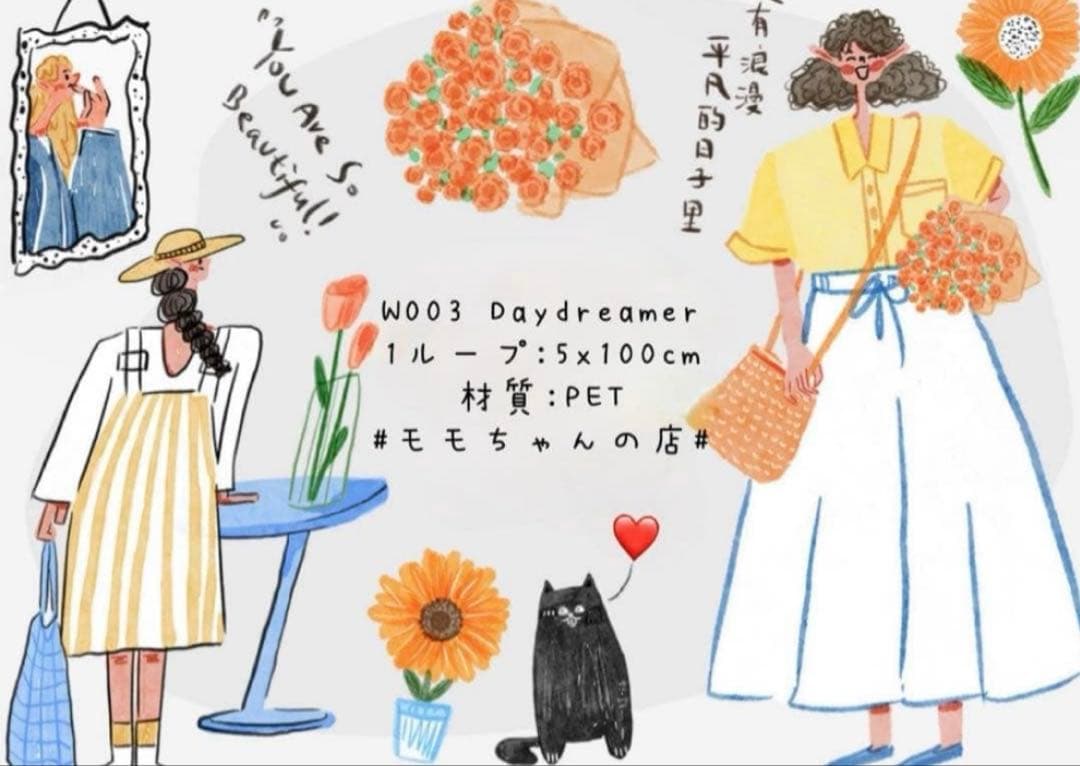 "You Are So
Beautiful!
有浪漫
平凡的日子里
W003 Daydreamer
1ループ:5x100cm
材質:PET
#モモちゃんの店#